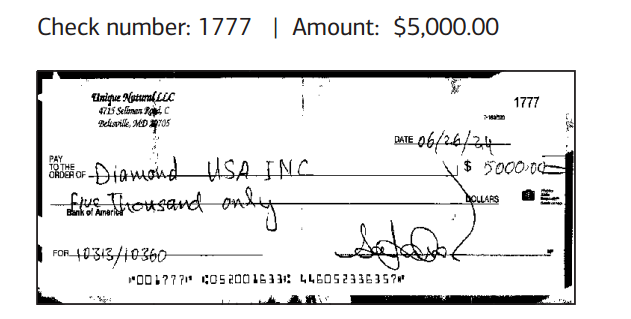 Check number: 1777 | Amount: $5,000.00
Unique Natural LLC
4715 Sellman Road, C
Beltsville, MD 20705
1777
DATE 06/26/24
PAY
TO THE
ORDER OF Diamond USA INC $ 5000.00
Five Thousand only DOLLARS
Bank of America
FOR 10313/10360
⑈001777⑈ ⑆052001633⑆ 446052336357⑈